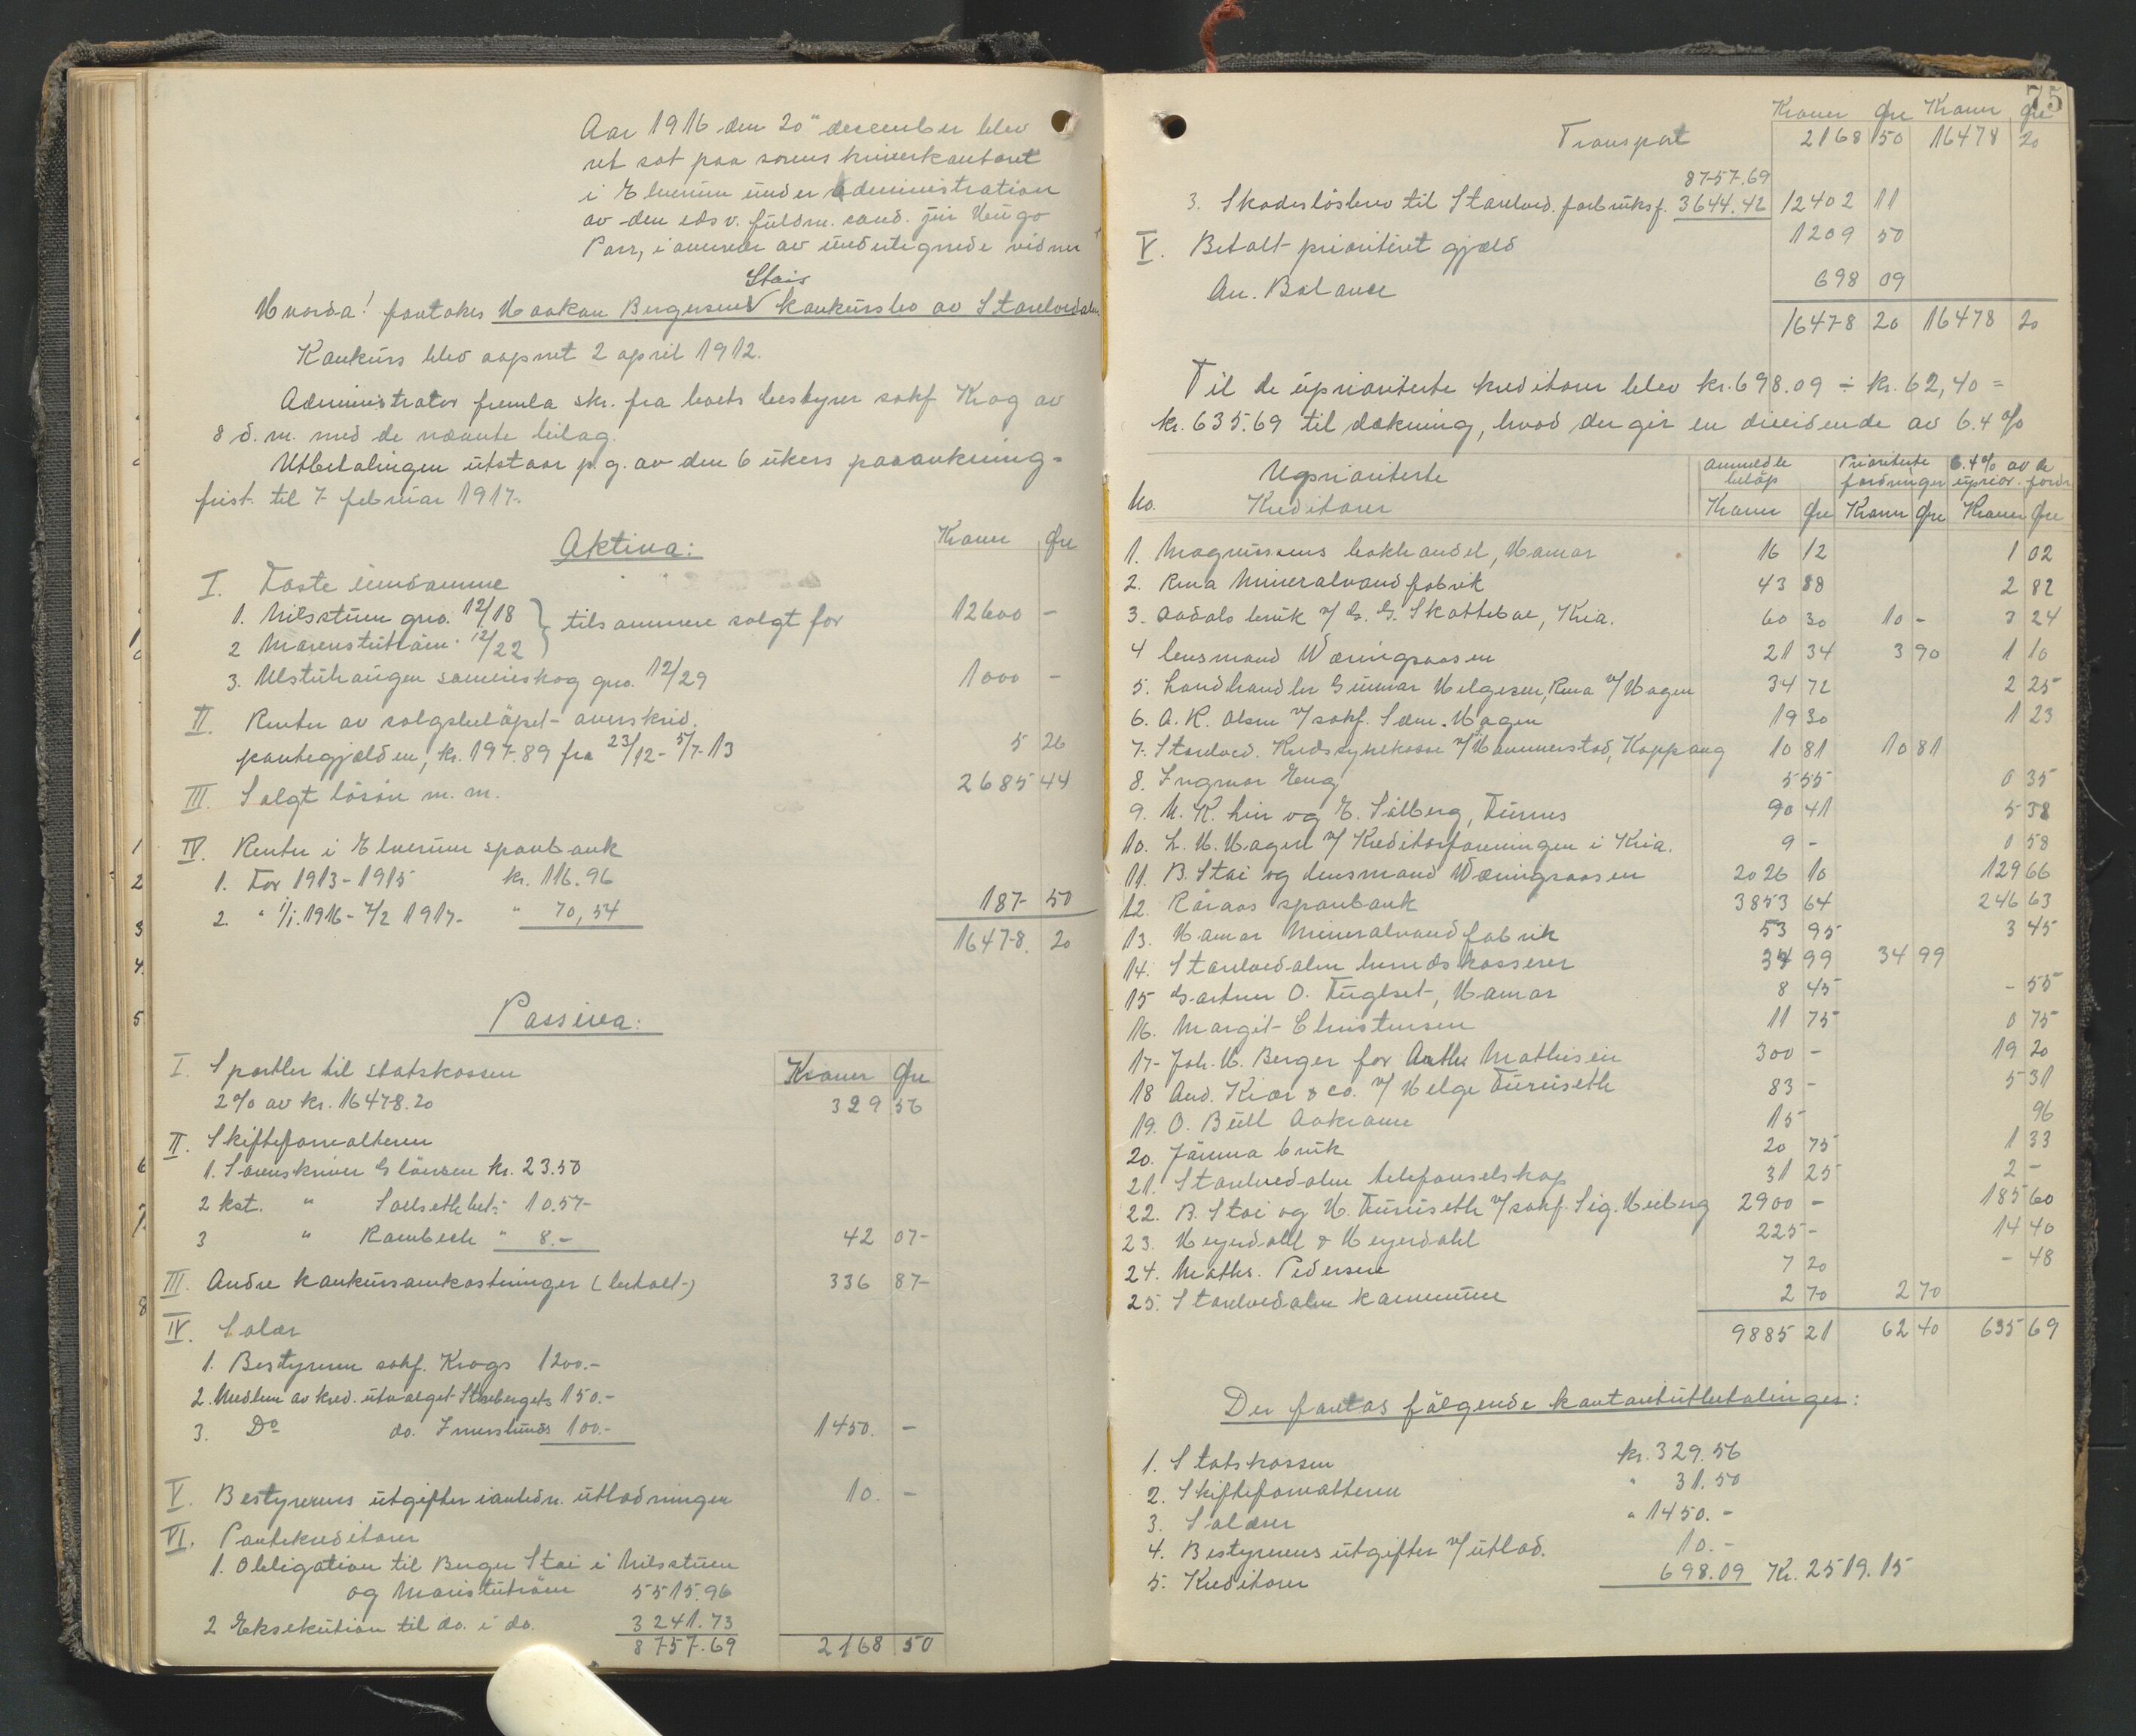 Aar 1916 den 20" december blev
ret sat paa sorenskriverkontoret
i Elverum under administration
av den eds v. fuldm. cand. jur Hugo
Parr, i nærvær av undertegnede vidner
Hvorda! foretokes Haakon Bergersens Stais konkursbo av Storelvedalen
Konkurs blev aapnet 2 april 1912.
Administrator fremla skr. fra boets bestyrer sakf Krog av
8 d. m. med de nævnte bilag.
Utbetalingen utstaar p.g. av den 6 ukers paaanknings-
frist til 7 februar 1917.
Aktiva:
Kroner Øre
I. Faste eiendomme
1. Nilsstuen gno. 12/18 } tilsammen solgt for 12600 -
2 Marenstutrøen 12/22
3. Ulstuhaugen sameieskog gno. 12/29 1000 -
II. Renter av salgsbeløpet overskrid.
pantegjelden, kr. 197.89 fra 23/12 - 5/7-13 5 26
III. Salgt løsøre m. m. 2685 44
IV. Renter i Elverum sparebank
1. For 1913-1915 kr. 116.96
2. " 1/1.1916 - 7/2 1917. " 70,54 187 50
16478. 20
Passiva:
Kroner Øre
I. Sportler til statskassen
2% av kr. 16478.20 329 56
II. Skifteforvalteren
1. Sorenskriver Glørsen kr. 23.50
2 kst. " Sollseth bet. 10.57
3 " Rambech " 8.- 42 07
III. Andre konkursomkostninger (betalt) 336 87
IV. Salær
1. Bestyreren sakf. Krogs 1200.-
2. Medlem av kred. utvalget Storbergets 150.-
3. Do do. Imerslunds 100.- 1450. -
V. Bestyrerens utgifter i anledn. utlodningen 10. -
VI. Pantekreditorer
1. Obligation til Berger Stai i Nilsstuen
og Maristutrøen 5515.96
2 Eksekution til do. i do. 3241.73
8757.69 2168 50
75
Kroner Øre Kroner Øre
Transport 2168 50 16478 20
8757.69
3. Skadesløsbrev til Storelved. forbruksf. 3644.42 12402 11
V. Betalt prioritert gjæld 1209 50
An. Balance 698 09
16478 20 16478 20
Til de uprioriterte kreditorer blev kr. 698.09 ÷ kr. 62,40 =
kr. 635.69 til dækning, hvad der gir en dividende av 6.4 %
No. Uprioriterte Kreditorer
anmeldte beløp Prioriterte fordringer 6.4% av de uprior. fordr
Kroner Øre Kroner Øre Kroner Øre
1. Magnussens bokhandel, Hamar 16 12 1 02
2. Rena Mineralvandfabrik 43 88 2 82
3. Aadals bruk v/ G. G. Skattebøe, Kria. 60 30 10 - 3 24
4 lensmand Wæringsaasen 21 34 3 90 1 10
5. Landhandler Gunnar Helgesen, Rena v/ Hagen 34 72 2 25
6. A. K. Olsen v/ sakf. Sæm. Hagen 19 30 1 23
7. Storelved. Kredssykekasse v/ Hammerstad, Koppang 10 81 10 81
8. Ingmar Eng 5 55 0 35
9. N. K. Lie og E. Solberg, Furnes 90 41 5 38
10. L. H. Hagen v/ Kreditorforeningen i Kria. 9 - 0 58
11. B. Stai og lensmand Wæringsaasen 2026 10 129 66
12. Røraas sparebank 3853 64 246 63
13. Hamar Mineralvandfabrik 53 95 3 45
14. Storelvedalen herredskasserer 34 99 34 99
15 Gartner O. Fuglset, Hamar 8 45 - 55
16. Margit Christensen 11 75 0 75
17. Joh. H. Berger for Anthe Mathisen 300 - 19 20
18 And. Kiær & co. v/ Helge Furuseth 83 - 5 31
19. O. Bull Aakrann 15 96
20. Jømna bruk 20 75 1 33
21. Storelvedalen telefonselskap 31 25 2 -
22. B. Stai og H. Furuseth v/ sakf. Sig. Heiberg 2900 - 185 60
23. Heyerdahl & Heyerdahl 225 - 14 40
24. Maths. Pedersen 7 20 - 48
25. Storelvedalen kommune 2 70 2 70
9885 21 62 40 635 69
Der foretas følgende kontantutbetalinger:
1. Statskassen kr. 329.56
2. Skifteforvalteren " 31.50
3. Salærer " 1450.-
4. Bestyrerens utgifter v/ utlod. 10.-
5. Kreditorer 698.09 Kr. 2519.15